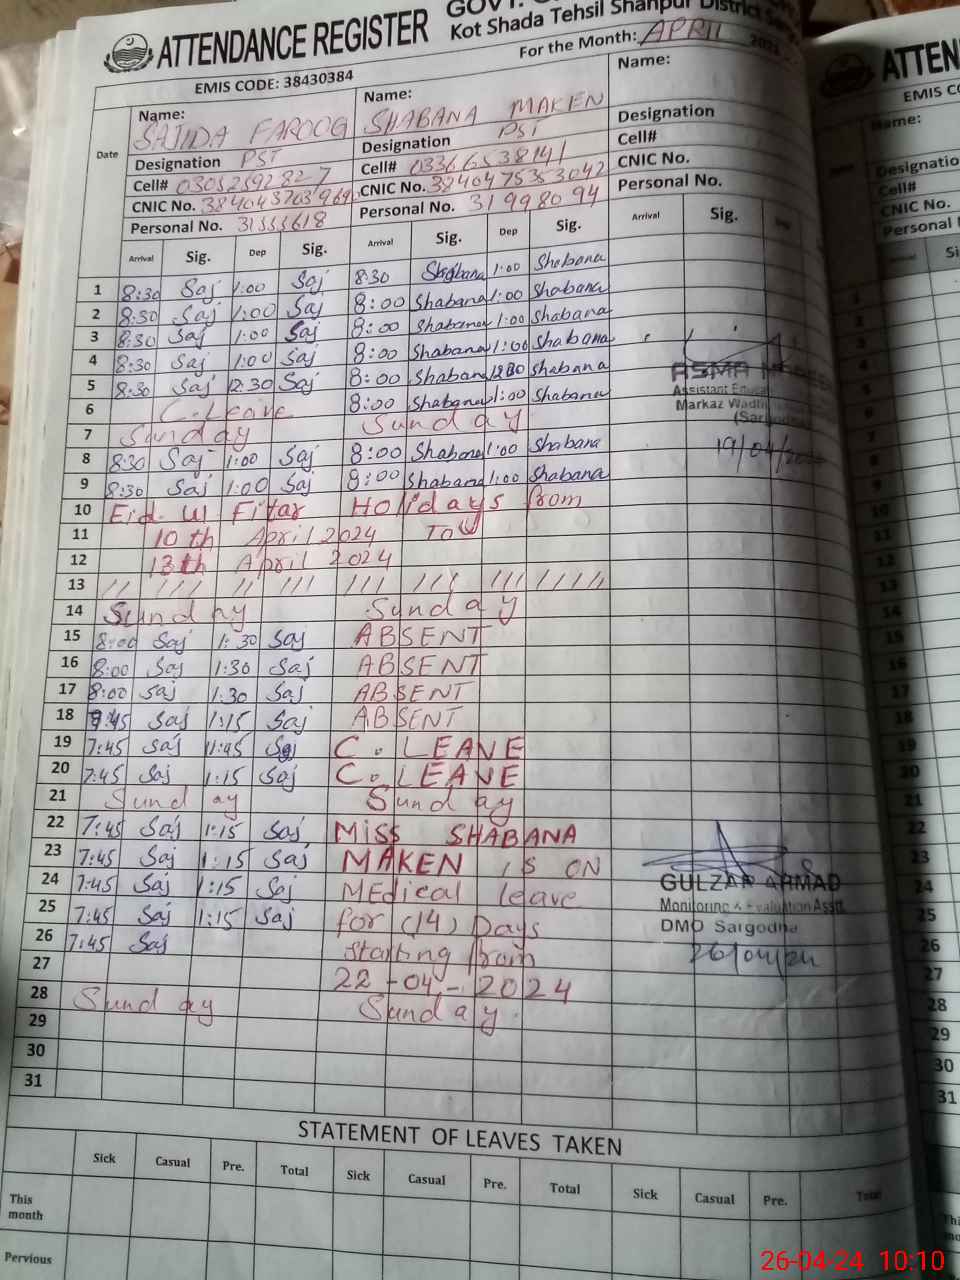 ATTENDANCE REGISTER
GOVT.
Kot Shada Tehsil Shahpur District
For the Month: APRIL
EMIS CODE: 38430384
Date
Name: SAJIDA FAROOG
Name: SHABANA MAKEN
Name:
Designation PST
Designation PST
Designation
Cell#
Cell# 03366538141
Cell#
CNIC No.
CNIC No. 3840475353042
CNIC No.
Personal No.
Personal No. 31998094
Personal No.
Arrival Sig. Dep Sig. Arrival Sig. Dep Sig. Arrival Sig. Dep
1 8:30 Saj 1:00 Saj 8:30 Shabana 1:00 Shabana
2 8:30 Saj 1:00 Saj 8:00 Shabana 1:00 Shabana
3 8:30 Saj 1:00 Saj 8:00 Shabana 1:00 Shabana
4 8:30 Saj 1:00 Saj 8:00 Shabana 1:00 Shabana
5 8:30 Saj 12:30 Saj 8:00 Shabana Shabana
6 C.Leave 8:00 Shabana 1:00 Shabana
7 Sunday Sunday
8 8:30 Saj 1:00 Saj 8:00 Shabana 1:00 Shabana
9 8:30 Saj 1:00 Saj 8:00 Shabana 1:00 Shabana
10 Eid. Ul Fitar Holidays from
11 10th April 2024 To
12 13th April 2024
13 // /// // /// /// /// /// /////
14 Sunday Sunday
15 8:00 Saj 1:30 Saj ABSENT
16 8:00 Saj 1:30 Saj ABSENT
17 8:00 Saj 1:30 Saj ABSENT
18 7:45 Saj 1:15 Saj ABSENT
19 7:45 Saj 11:45 Saj C. LEAVE
20 7:45 Saj 1:15 Saj C. LEAVE
21 Sunday Sunday
22 7:45 Saj 1:15 Saj MISS SHABANA
23 7:45 Saj 1:15 Saj MAKEN IS ON
24 7:45 Saj 1:15 Saj MEdical leave
25 7:45 Saj 1:15 Saj for (14) Days
26 7:45 Saj starting from
27 22-04-2024
28 Sunday Sunday
29
30
31
ASMA
Assistant
Markaz
19/04/
GULZAR AHMAD
Monitoring & Evaluation Asstt
DMO Sargodha
26/04/24
STATEMENT OF LEAVES TAKEN
Sick Casual Pre. Total Sick Casual Pre. Total Sick Casual Pre. Total
This month
Pervious
ATTEN
EMIS
Name:
Cell#
CNIC No.
Personal
1
2
3
4
5
6
7
8
9
10
11
12
13
14
15
16
17
18
19
20
21
22
23
24
25
26
27
28
29
30
31
26-04-24 10:10